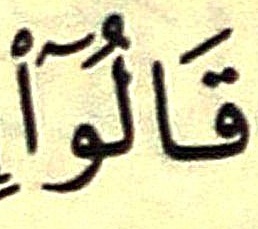 قَالُوٓاْ